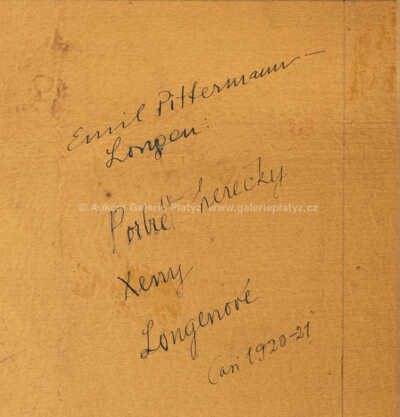 Emil Pittermann –
Longen:
© Aukční Galerie Platýz, www.galerieplatyz.cz
Portrét herečky
Xeny
Longenové
(asi 1920-21)